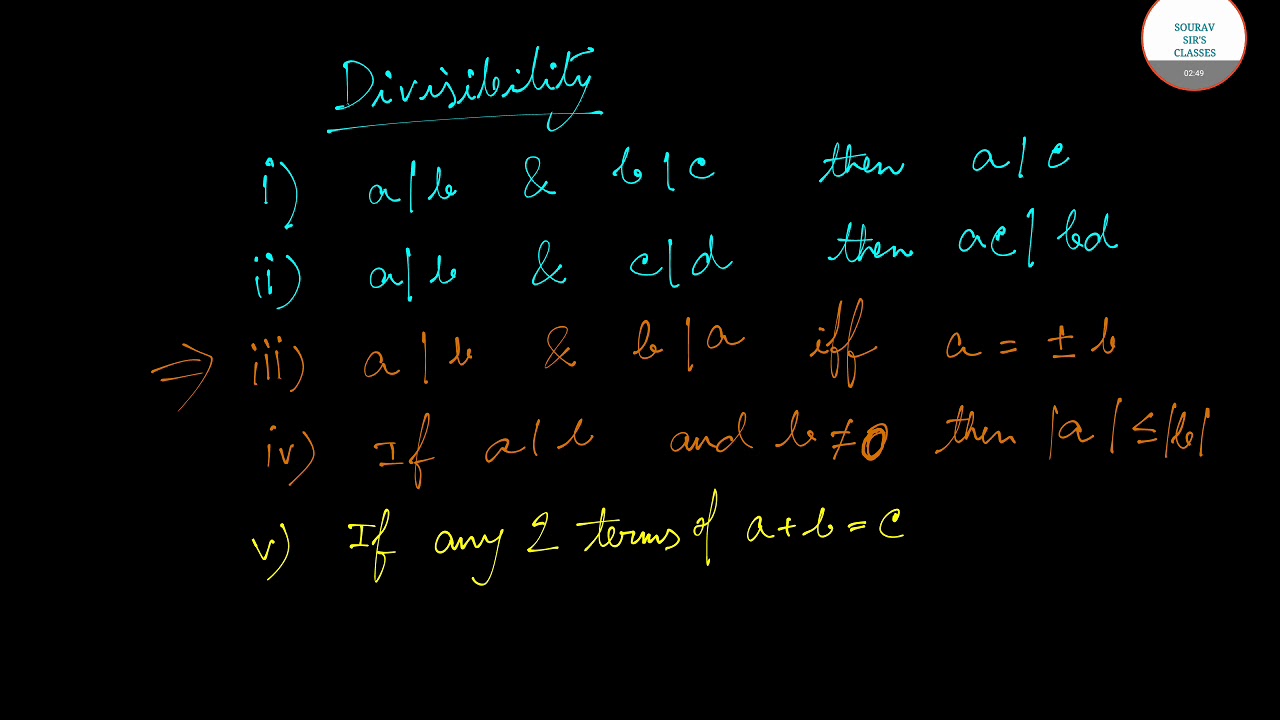 SOURAV
SIR'S
CLASSES
02:49
Divisibility
i) a|b & b|c then a|c
ii) a|b & c|d then ac|bd
⇒ iii) a|b & b|a iff a = ± b
iv) If a|b and b≠0 then |a|≤|b|
v) If any 2 terms of a+b=c